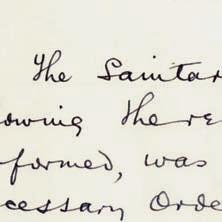 The Sanitar
owing there
formed, was
cessary Orde